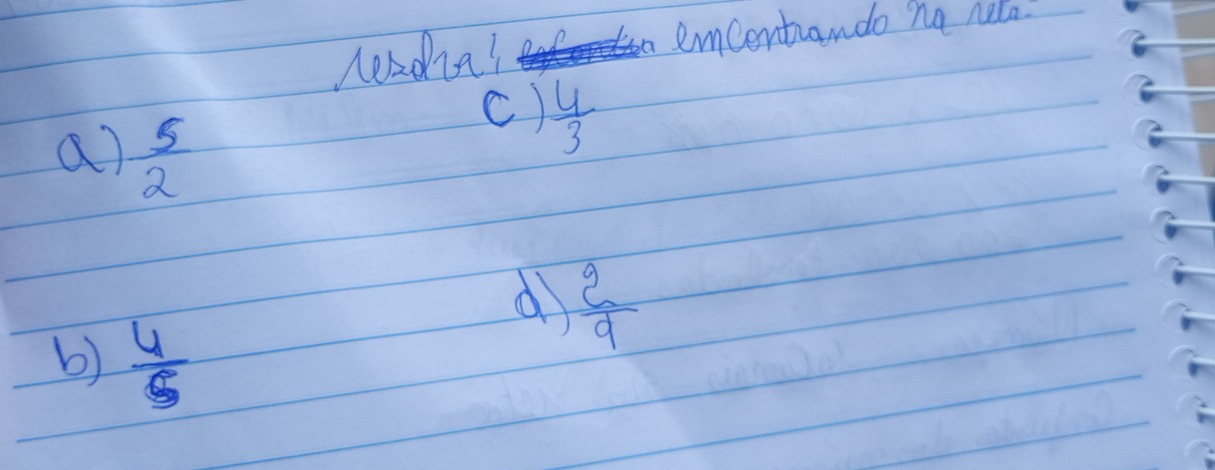 resolva! encontrando na reta.
a) 5/2
c) 4/3
b) 4/5
d) 2/9